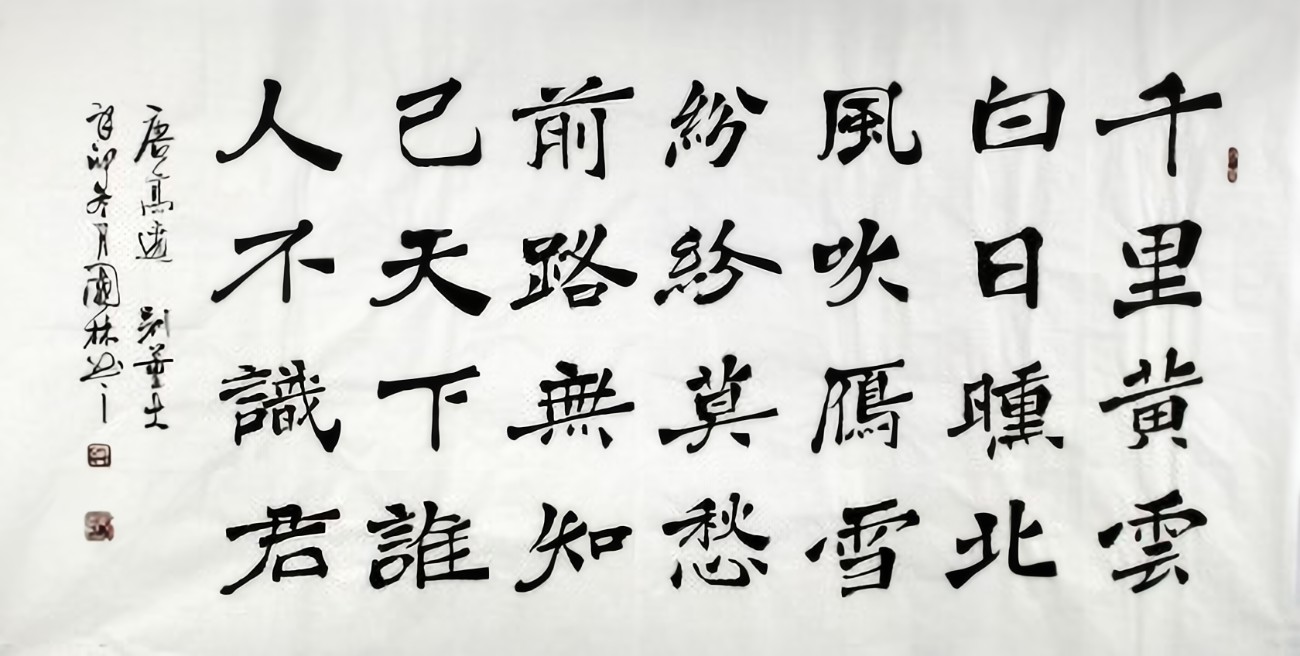 千里黄雲
白日曛北
風吹鴈雪
紛紛莫愁
前路無知
己天下誰
人不識君
唐高適 別董大
卯冬月國林